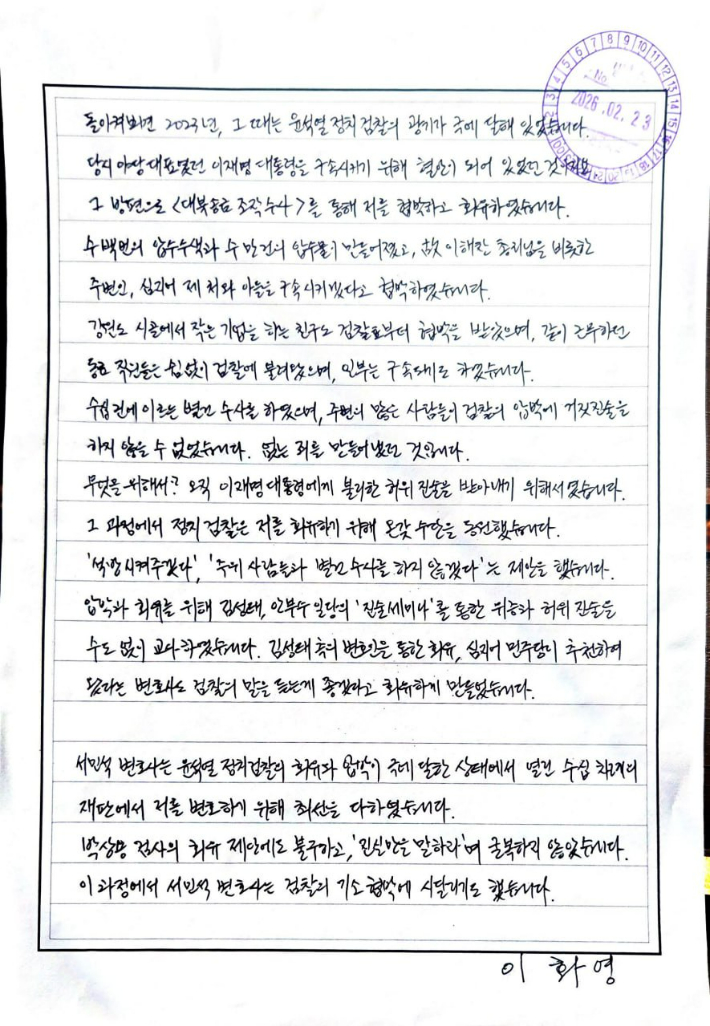 돌아켜보면 2023년, 그때는 윤석열 정치 검찰의 광기가 극에 달해 있었습니다.
당시 야당 대표였던 이재명 대통령을 구속시키기 위해 혈안이 되어 있었던 것
그 방편으로 <대북송금 조작수사>를 통해 저를 협박하고 회유하였습니다.
수백번의 압수수색과 수만건의 압수물이 만들어졌고, 故 이해찬 총리님을 비롯한
주변인, 심지어 제 처와 아들을 구속시키겠다고 협박하였습니다.
강원도 시골에서 작은 기업을 하는 친구도 검찰로부터 협박을 받았으며, 같이 근무하던
동료 직원들은 쉼없이 검찰에 불려왔으며, 일부는 구속되기도 하였습니다.
수십건에 이르는 별건 수사를 하였으며, 주변의 많은 사람들이 검찰의 압박에 거짓진술을
하지 않을 수 없었습니다. 없는 죄를 만들어냈던 것입니다.
무엇을 위해서? 오직 이재명 대통령에게 불리한 허위 진술을 받아내기 위해서였습니다.
그 과정에서 정치 검찰은 저를 회유하기 위해 온갖 수단을 동원했습니다.
'석방시켜주겠다', '주위 사람들과 별건 수사를 하지 않겠다'는 제안을 했습니다.
압박과 회유를 위해 김성태, 안부수 일당의 '진술세미나'를 통한 위증과 허위 진술을
수도 없이 교사하였습니다. 김성태 측의 변호인을 통한 회유, 심지어 민주당이 추천하여
왔다는 변호사도 검찰의 말을 듣는게 좋겠다고 회유하게 만들었습니다.
서민석 변호사는 윤석열 정치검찰의 회유와 압박이 극에 달한 상태에서 열린 수십 차례의
재판에서 저를 변호하기 위해 최선을 다하였습니다.
박상용 검사의 회유 제안에도 불구하고, '진실만을 말하라'며 굴복하지 않았습니다.
이 과정에서 서민석 변호사는 검찰의 기소 협박에 시달리기도 했습니다.
이 화 영
No.
2026.02.23